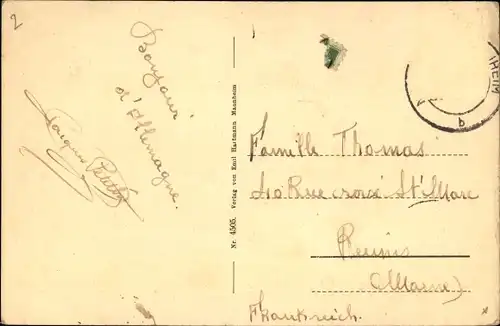 2
Bonjour
d'Allemagne.
Nr. 4505. Verlag von Emil Hartmann Mannheim
HEIM
b
Famille Thomas
Rue croix St Marc
Reims
(Marne)
Frankreich.